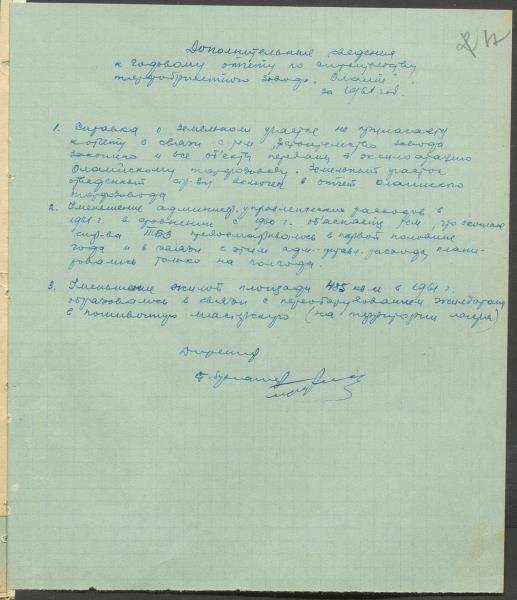 Дополнительные сведения
к годовому отчету по строительству
торфобрикетного завода "Олайне"
за 1961 год.
1. Справка о земельном участке не прилагается
к отчету в связи с тем, строительство завода
закончено и все объекты переданы в эксплоатацию
Олайнскому торфозаводу. Земельный участок
отведенный стр-ву включен в отчет Олайнского
торфозавода
2. Уменьшение админист. управленческих расходов в
1961 г. в сравнении с 1960 г. объясняется тем, что окончание
стр-ва ТБЗ предусматривалось в первой половине
года и в связи с этим адм.-управ. расходы плани-
ровались только на полгода.
3. Уменьшение жилой площади 405 кв м в 1961 г.
образовалось в связи с переоборудованием
в пошивочную мастерскую (на территории лагеря)
Директор